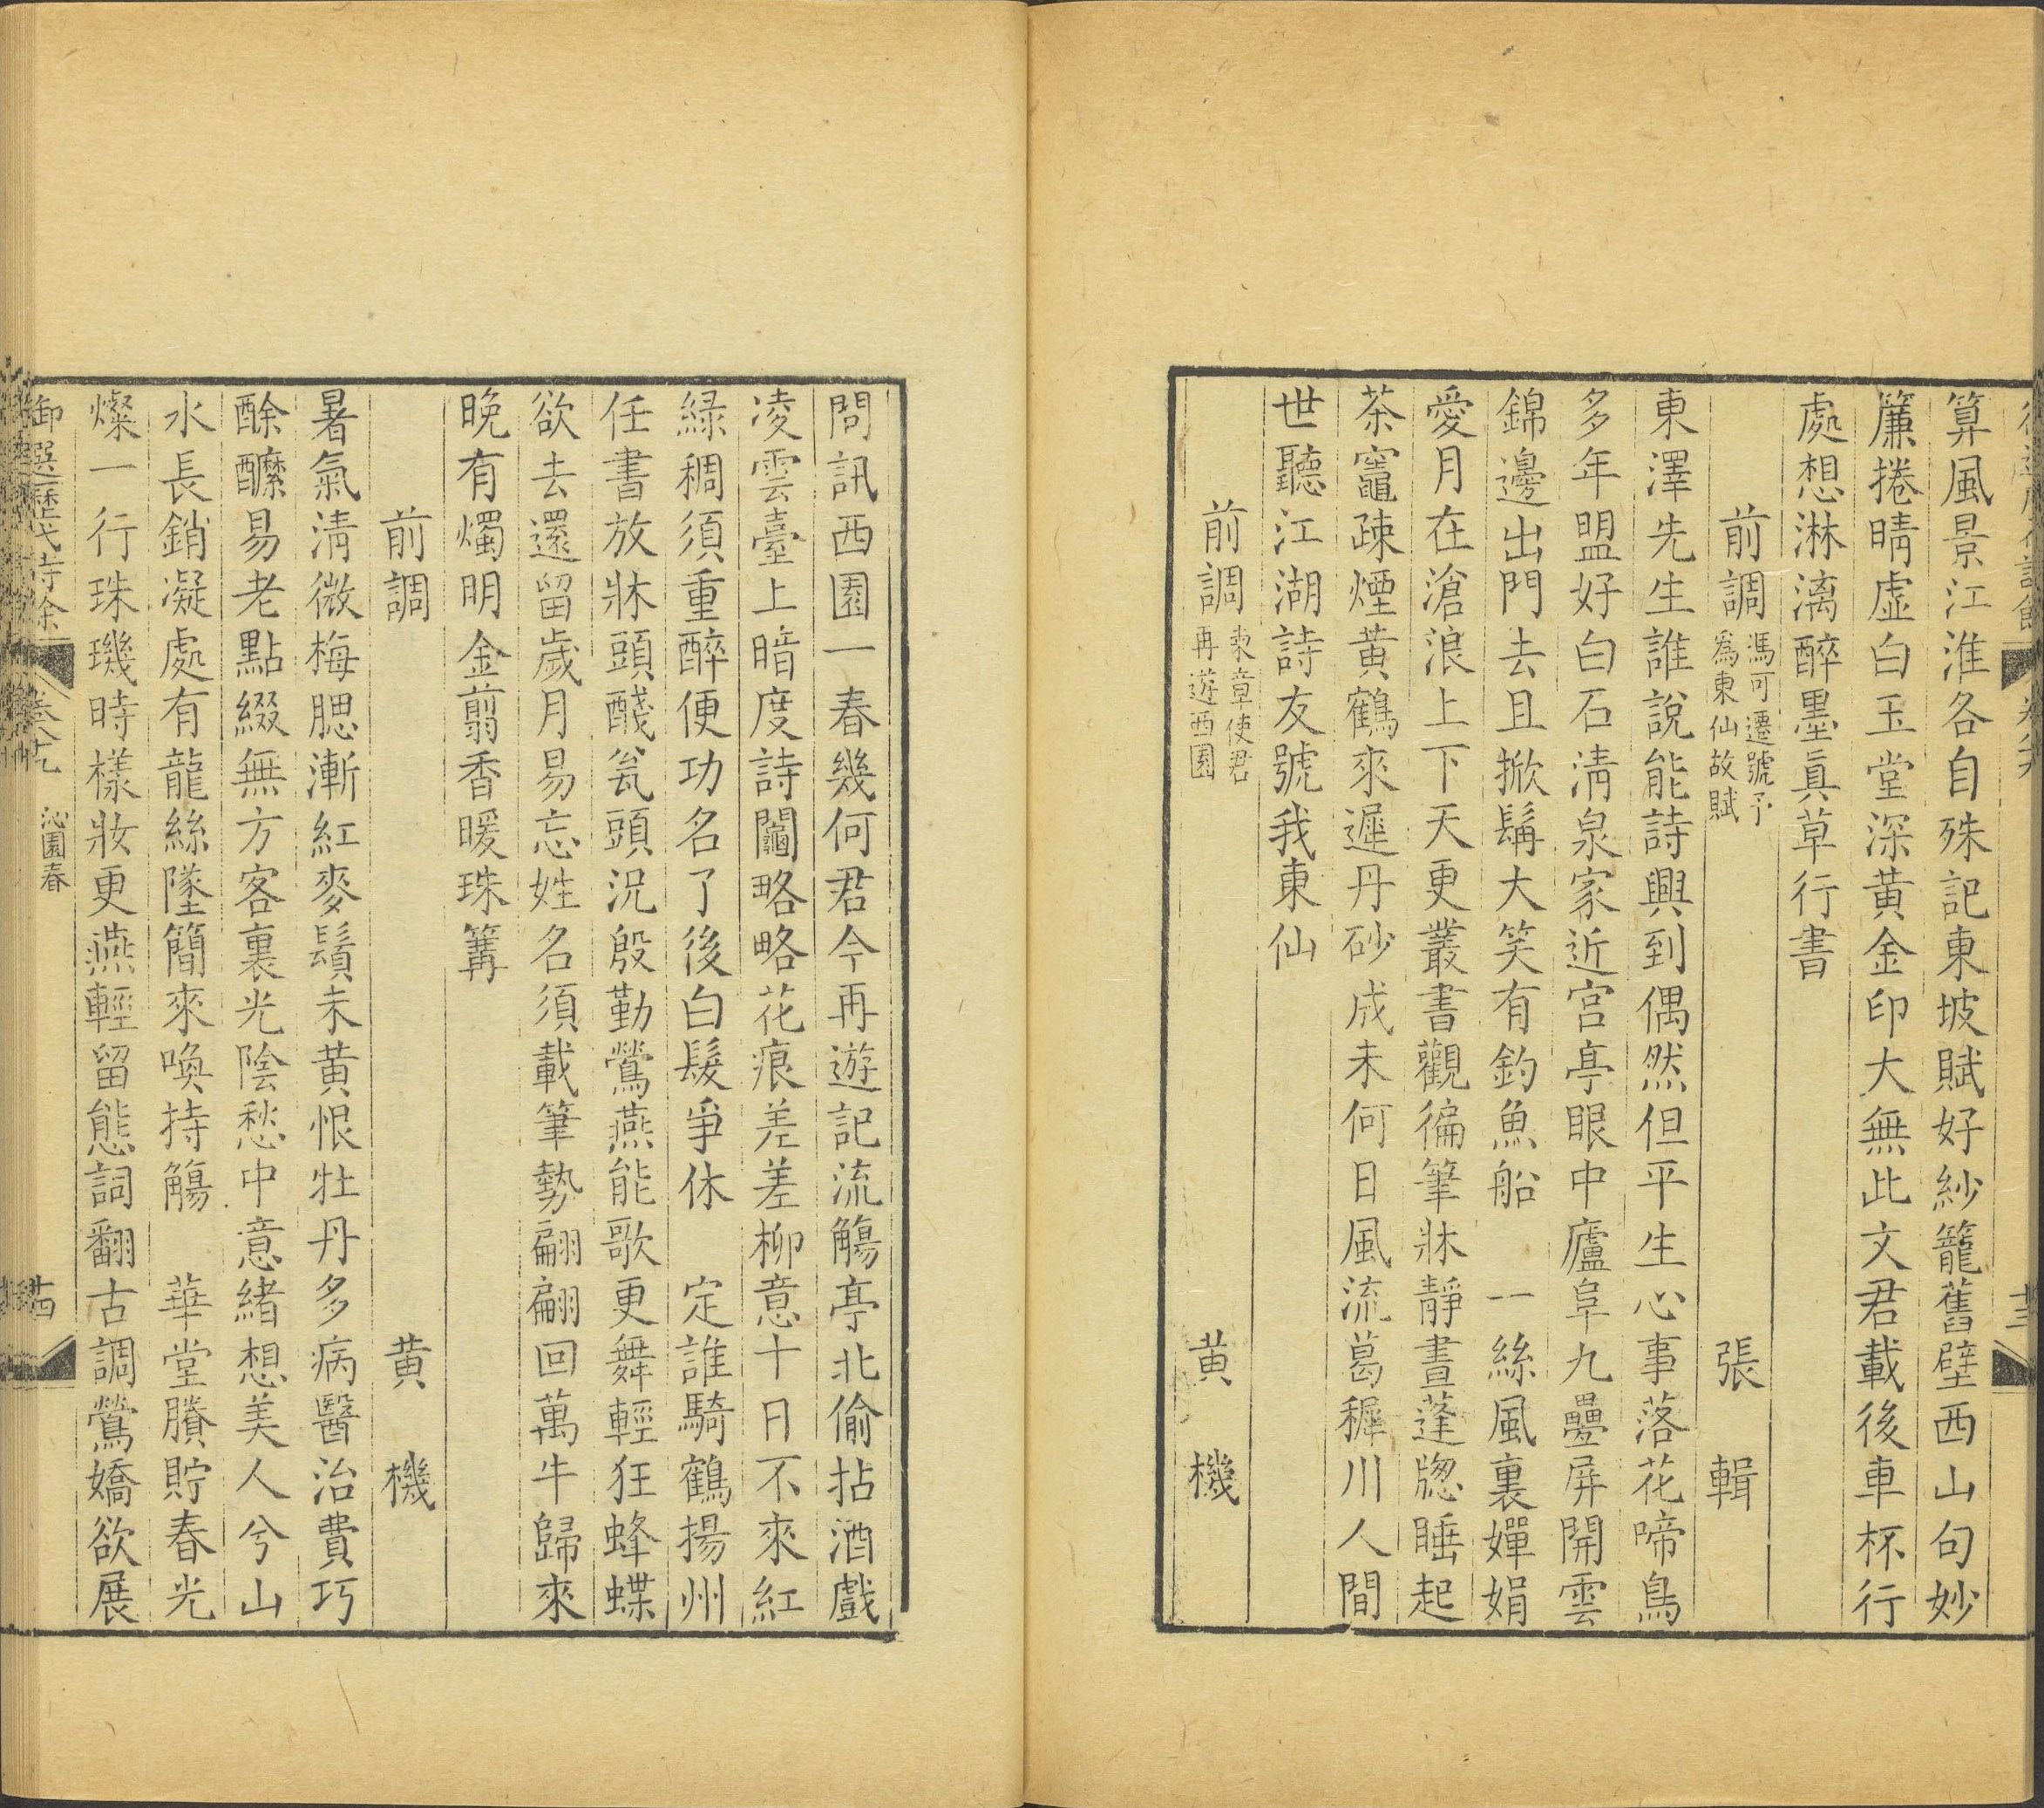 算風景江淮各自殊記東坡賦好紗籠舊壁西山句妙
簾捲晴虛白玉堂深黃金印大無此文君載後車杯行
處想淋漓醉墨眞草行書
前調 馮可遷號予爲東仙故賦 張輯
東澤先生誰說能詩興到偶然但平生心事落花啼鳥
多年盟好白石淸泉家近宮亭眼中廬阜九疊屏開雲
錦邊出門去且掀髯大笑有釣魚船 一絲風裏嬋娟
愛月在滄浪上下天更叢書觀徧筆牀靜晝蓬牎睡起
茶竈疎煙黃鶴來遲丹砂成未何日風流葛稚川人間
世聽江湖詩友號我東仙
前調 柬章使君再遊西園 黃機
問訊西園一春幾何君今再遊記流觴亭北偷拈酒戲
凌雲臺上暗度詩鬮略略花痕差差柳意十日不來紅
綠稠須重醉便功名了後白髮爭休 定誰騎鶴揚州
任書放牀頭醆瓮頭況殷勤鶯燕能歌更舞輕狂蜂蝶
欲去還留歲月易忘姓名須載筆勢翩翩回萬牛歸來
晚有燭明金翦香暖珠篝
前調 黃機
暑氣淸微梅腮漸紅麥鬚未黃恨牡丹多病醫治費巧
酴醾易老點綴無方客裏光陰愁中意緒想美人兮山
水長銷凝處有龍絲墜簡來喚持觴 華堂賸貯春光
燦一行珠璣時樣妝更燕輕留態詞翻古調鶯嬌欲展
御選歷代詩餘 卷八十九 沁園春 十四